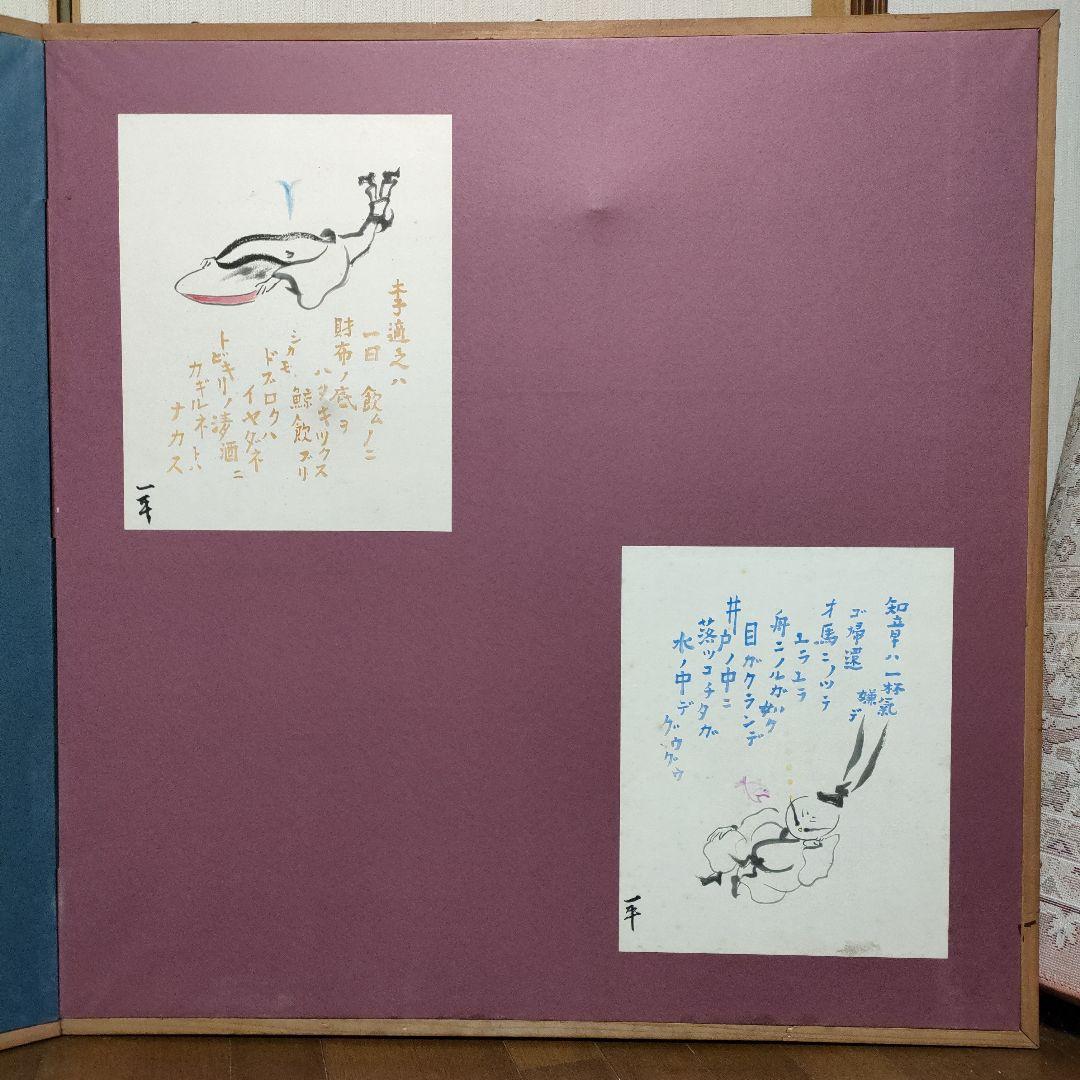 知章ハ一杯氣
嫌デ
ゴ帰還
オ馬ニノツテ
ユラユラ
舟ニノルガ如ク
目ガクランデ
井戸ノ中ニ
落ツコチタガ
水ノ中デ
グウグウ
一平
李適之ハ
一日飲ムノニ
財布ノ底ヲ
ハタキツクス
シカモ鯨飲ブリ
ドブロクハ
イヤダネ
トビキリノ清酒ニ
カギルネトハ
ナカス
一平